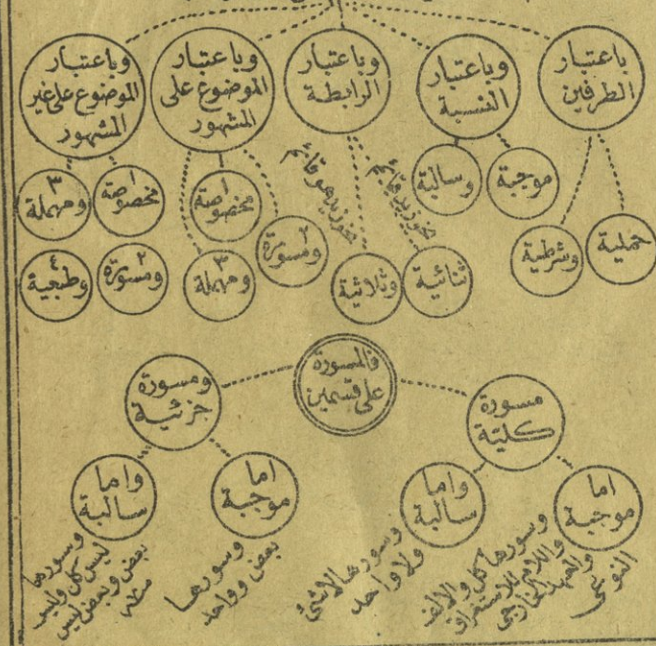 باعتبار
الطرفين
حملية
وشرطية
وباعتبار
النسبة
موجبة
وسالبة
وباعتبار
الرابطة
نحو زيد قائم
ثنائية
نحو زيد هو قائم
وثلاثية
وباعتبار
الموضوع على
المشهور
١
مخصوصة
٢
ومسورة
٣
ومهملة
وباعتبار
الموضوع على غير
المشهور
١
مخصوصة
٢
ومسورة
٣
ومهملة
٤
وطبعية
فالمسورة
على قسمين
مسورة
كلية
اما
موجبة
وسورها كل والالف
واللام للاستغراق
والعهد الخارجى
النوعى
واما
سالبة
وسورها لاشئ
ولا واحد
ومسورة
جزئية
اما
موجبة
وسورها
بعض وواحد
واما
سالبة
وسورها
ليس كل وليس
بعض وبعض ليس
مثله